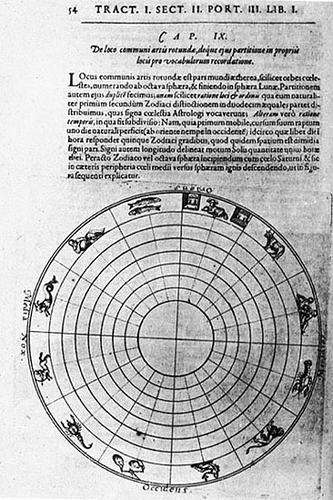 54 TRACT. I. SECT. II. PORT. III. LIB. I.
CAP. IX.
De loco communi artis rotundæ, deque ejus partitione in propriè
locis pro vocabulorum recordatione.
Locus communis artis rotundæ est pars mundi ætherea, scilicet orbes cœle-
stes, numerando ab octava sphæra, & finiendo in sphæra Lunæ. Partitionem
autem ejus duplicē fecimus; unam scilicet ratione loci & ordinis quæ eum natural-
ter primum secundum Zodiaci distinctionem in duodecim æquales partes di-
stribuimus, quas signa cœlestia Astrologi vocaverunt: Alteram verò ratione
temporis, in qua sit subdivisio: Nam, quia primum mobile, cursum suum raptum
uno die naturali perficit, (ab oriente nempe in occidentē) idcirco quælibet diei
hora respondet quinque Zodiaci gradibus, quod quidem spatium est dimidia
signi pars. Signi autem longitudo delineat motum Solis quantitate unius horæ
Peracto Zodiaco vel octava sphæra incipiendum cum cœlo Saturni, & sic
in cæteris peripheria cœli medii versus sphæram ignis descendendo, ut in figu-
ra sequenti explicatur.
Occidens.